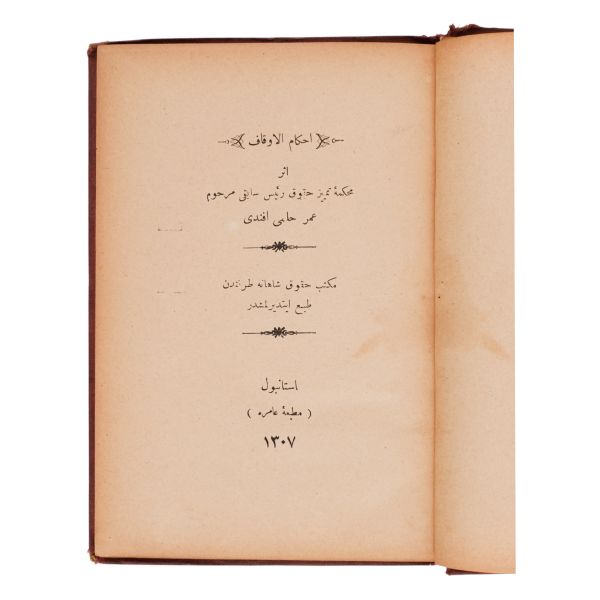 احكام الاوقاف
اثر
محكمهٔ تميز حقوق رئيس سابقى مرحوم
عمر حلمى افندى
مكتب حقوق شاهانه طرفندن
طبع ايتديرلمشدر
استانبول
( مطبعهٔ عامره )
١٣٠٧